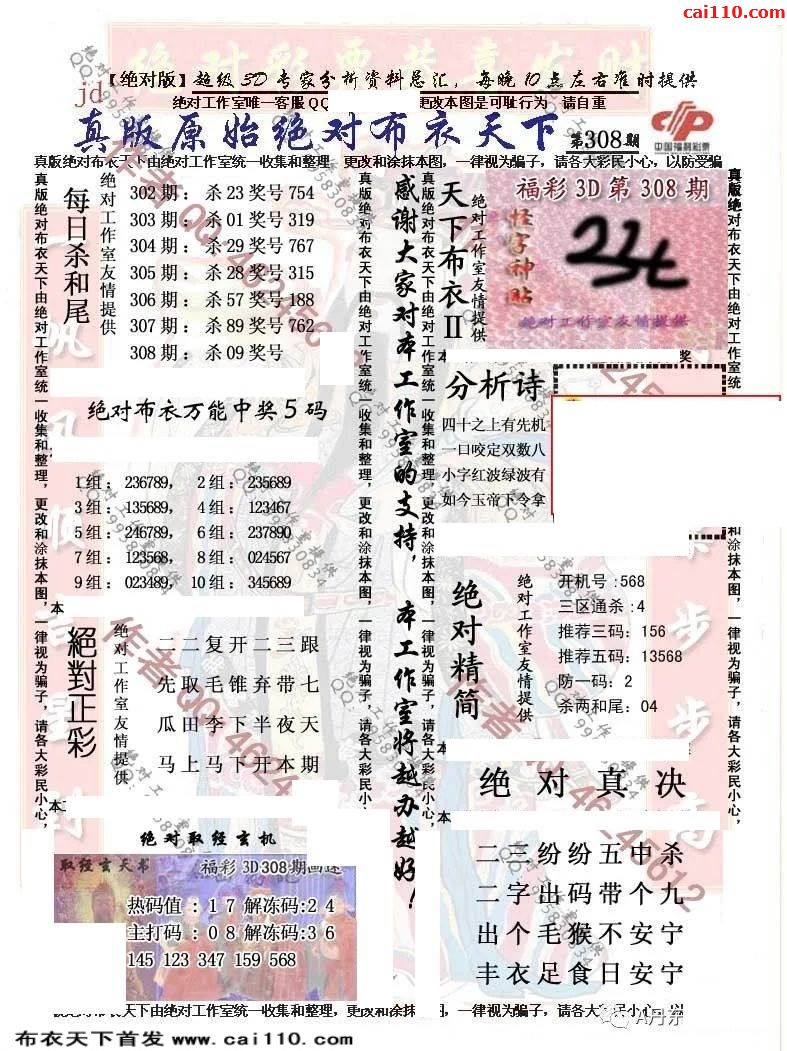 cai110.com
jd
【绝对版】超级3D专家分析资料总汇，每晚10点左右准时提供
绝对工作室唯一客服QQ
更改本图是可耻行为 请自重
真版原始绝对布衣天下
第308期
中国福利彩票
真版绝对布衣天下由绝对工作室统一收集和整理，更改和涂抹本图，一律视为骗子，请各大彩民小心，以防受骗
每日杀和尾
绝对工作室友情提供
302期：杀23奖号754
303期：杀01奖号319
304期：杀29奖号767
305期：杀28奖号315
306期：杀57奖号188
307期：杀89奖号762
308期：杀09奖号
绝对布衣万能中奖5码
1组：236789， 2组：235689
3组：135689， 4组：123467
5组：246789， 6组：237890
7组：123568， 8组：024567
9组：023489， 10组：345689
本
絕對正彩
绝对工作室友情提供
二二复开二三跟
先取毛锥弃带七
瓜田李下半夜天
马上马下开本期
本
绝对取经玄机
取经玄天书
福彩3D308期
热码值：17解冻码:24
主打码：08解冻码:36
145 123 347 159 568
感谢大家对本工作室的支持，本工作室将越办越好！
天下布衣II
绝对工作室友情提供
福彩3D第308期
怪字神贴
绝对工作室友情提供
本
奖
分析诗
四十之上有先机
一口咬定双数八
小字红波绿波有
如今玉帝下令拿
绝对精简
绝对工作室友情提供
开机号:568
三区通杀:4
推荐三码：156
推荐五码：13568
防一码：2
杀两和尾：04
本
绝对真决
本
二三纷纷五中杀
二字出码带个九
出个毛猴不安宁
丰衣足食日安宁
真版绝对布衣天下由绝对工作室统一收集和整理，更改和涂抹本图，一律视为骗子，请各大彩民小心，
真版绝对布衣天下由绝对工作室统一收集和整理，更改和涂抹本图，一律视为骗子，请各大彩民小心，
真版绝对布衣天下由绝对工作室统一收集和整理，更改和涂抹本图，一律视为骗子，请各大彩民小心，
真版绝对布衣天下由绝对工作室统一
和涂抹本图，一律视为骗子，请各大彩民小心，
绝对布衣天下由绝对工作室统一收集和整理，更改和涂抹本图，一律视为骗子，请各大彩民小心，以
A丹东
布衣天下首发 www.cai110.com